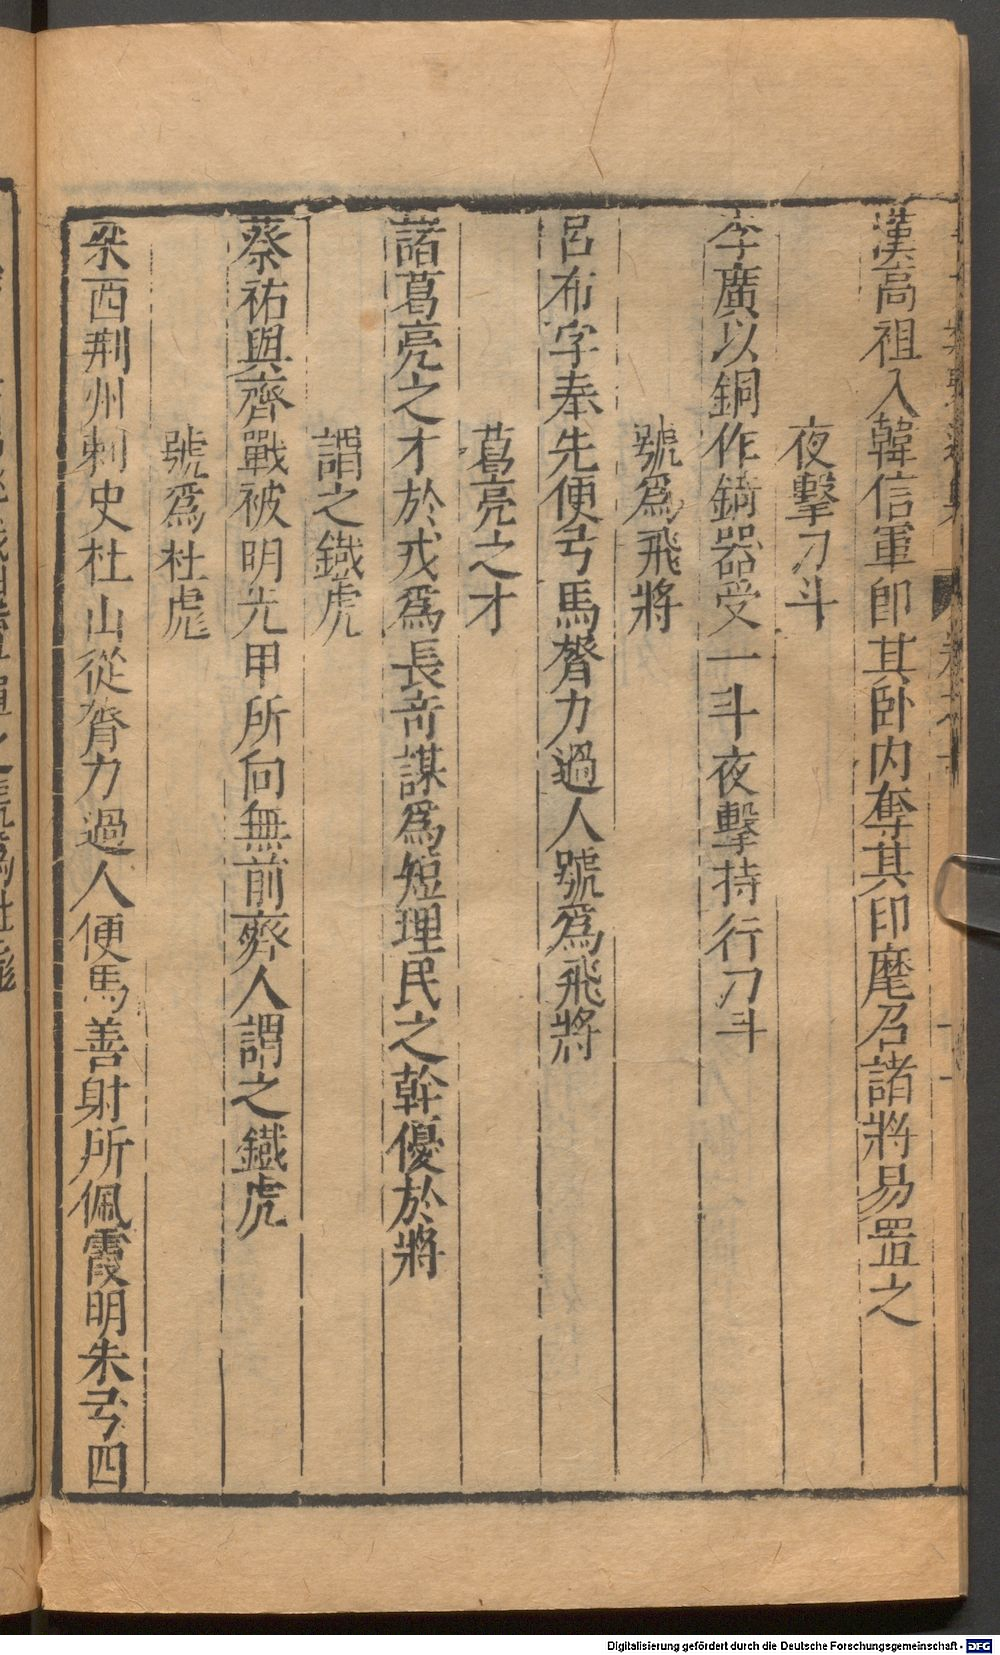 漢高祖入韓信軍即其卧内奪其印麾召諸將易置之
夜擊刀斗
李廣以銅作錡器受一斗夜擊持行刀斗
號爲飛將
呂布字奉先便弓馬膂力過人號爲飛將
葛亮之才
諸葛亮之才於戎爲長竒謀爲短理民之幹優於將
謂之鐵虎
蔡祐與齊戰被明光甲所向無前齊人謂之鐵虎
號爲杜彪
梁西荆州刺史杜山從膂力過人便馬善射所佩霞明朱弓四
Digitalisierung gefördert durch die Deutsche Forschungsgemeinschaft - DFG